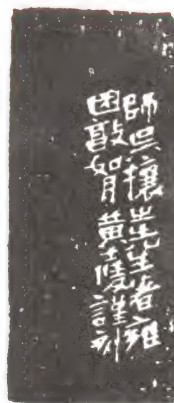 師吳攘之先生者雍
困敦如月黃士陵謹刻